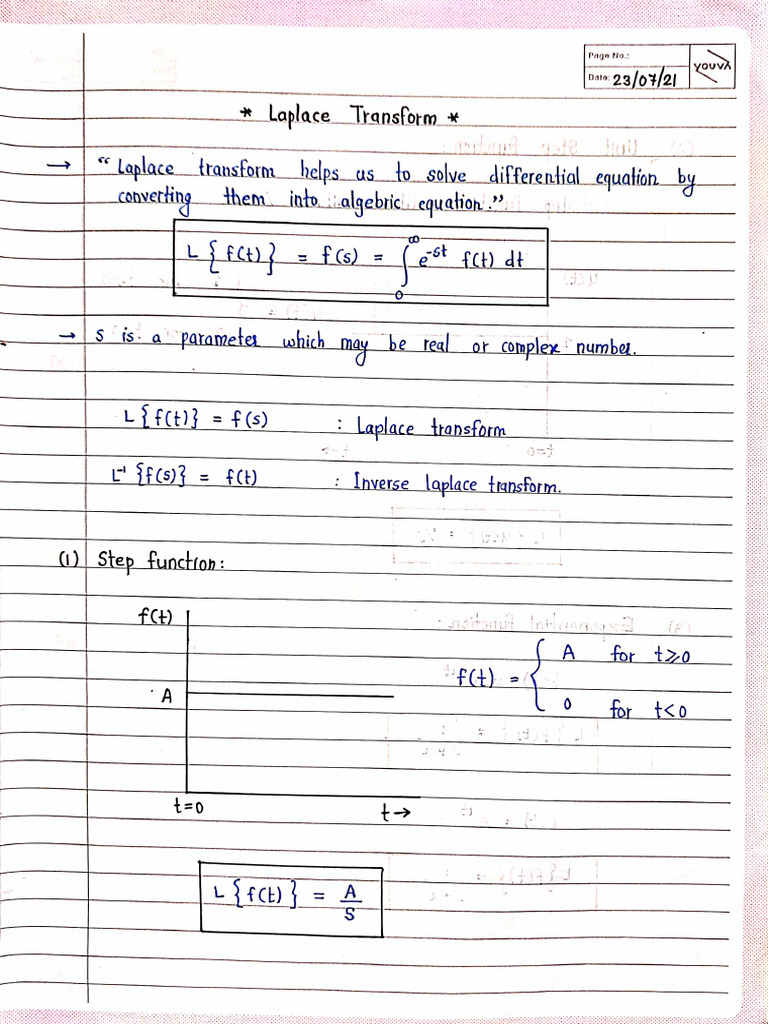 Page No.:
Date: 23/07/21
YOUVA
* Laplace Transform *
→ "Laplace transform helps us to solve differential equation by
converting them into algebric equation."
L { f(t) } = f(s) = ∫₀^∞ e^-st f(t) dt
→ s is a parameter which may be real or complex number.
L { f(t) } = f(s) : Laplace transform
L⁻¹ { f(s) } = f(t) : Inverse laplace transform.
(1) Step function:
f(t)
A
t=0 t→
f(t) = { A for t≥0
0 for t<0
L { f(t) } = A/S